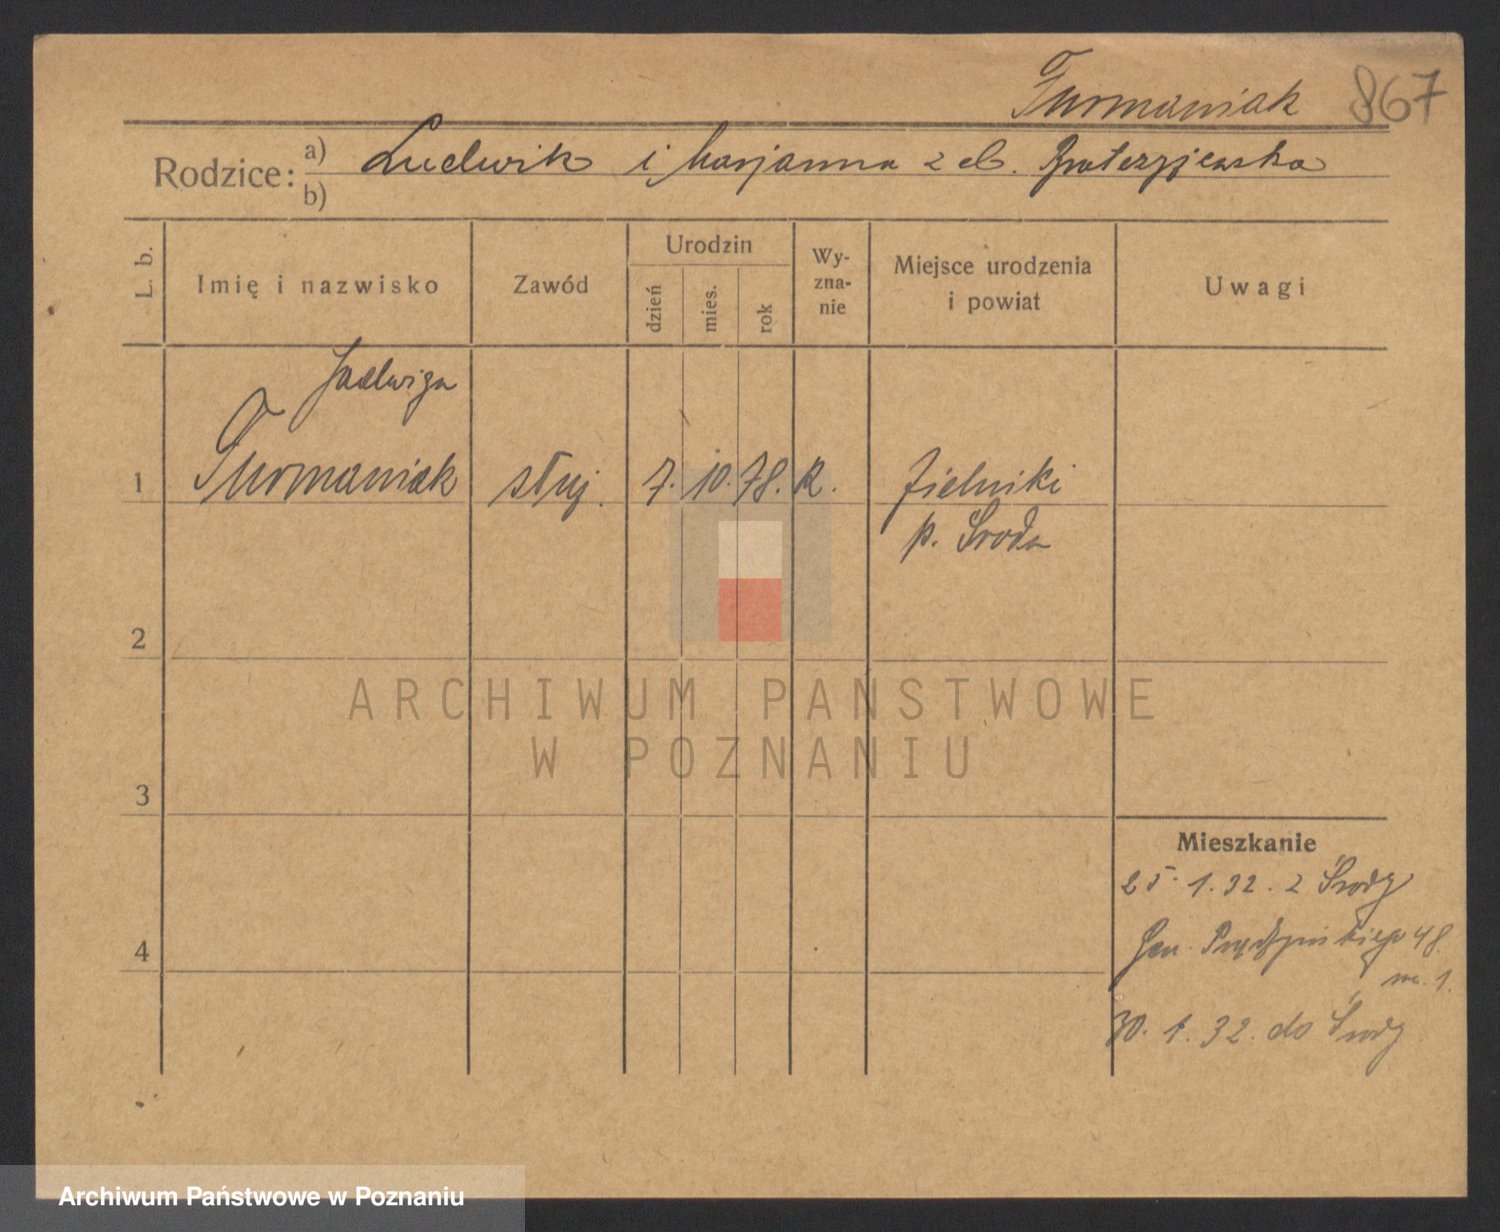 Furmaniak 867
Rodzice: a) Ludwik i Marjanna z d.
b)
L. b.
Imię i nazwisko
Zawód
Urodzin
dzień
mies.
rok
Wy-
zna-
nie
Miejsce urodzenia
i powiat
Uwagi
Jadwiga
1 Furmaniak służ. 7. 10. 78. R. Zielniki
p. Środa
2
3
4
Mieszkanie
25. 1. 32. z Środy
Gen. Prądzyńskiego 48
m. 1.
30. 1. 32. do Środy
ARCHIWUM PAŃSTWOWE
W POZNANIU
Archiwum Państwowe w Poznaniu